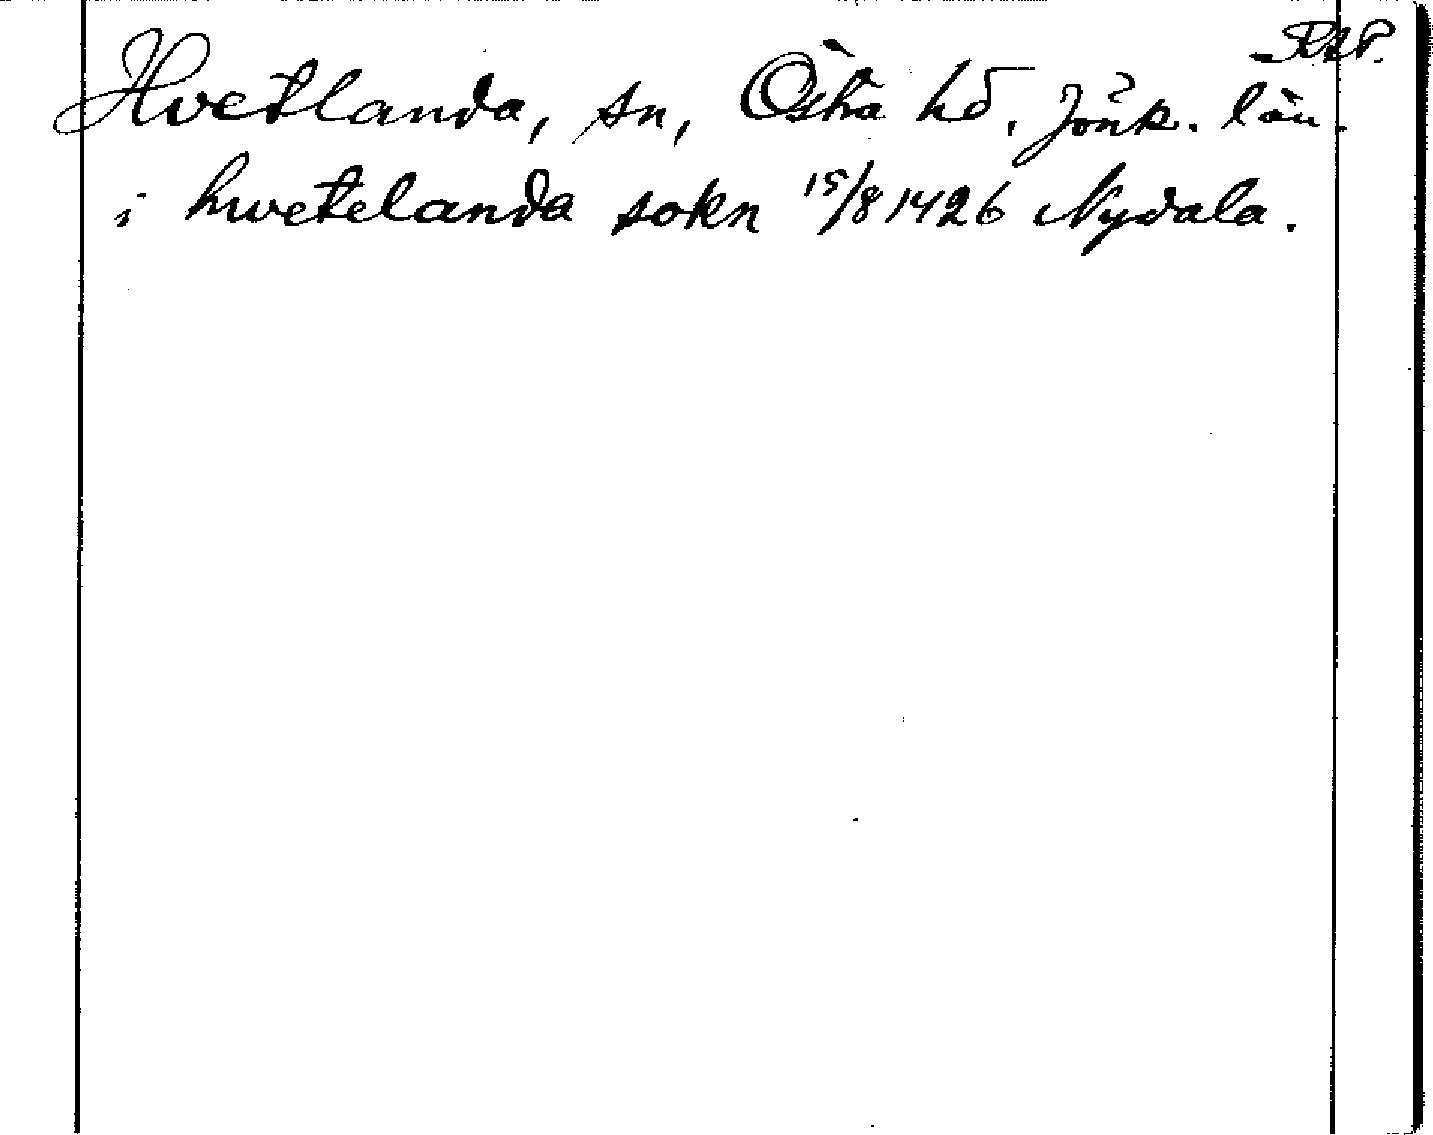 RAP.
Hvetlanda, sn, Östra hd. Jönk. län.
i hwetelanda sokn 15/8 1426 Nydala.